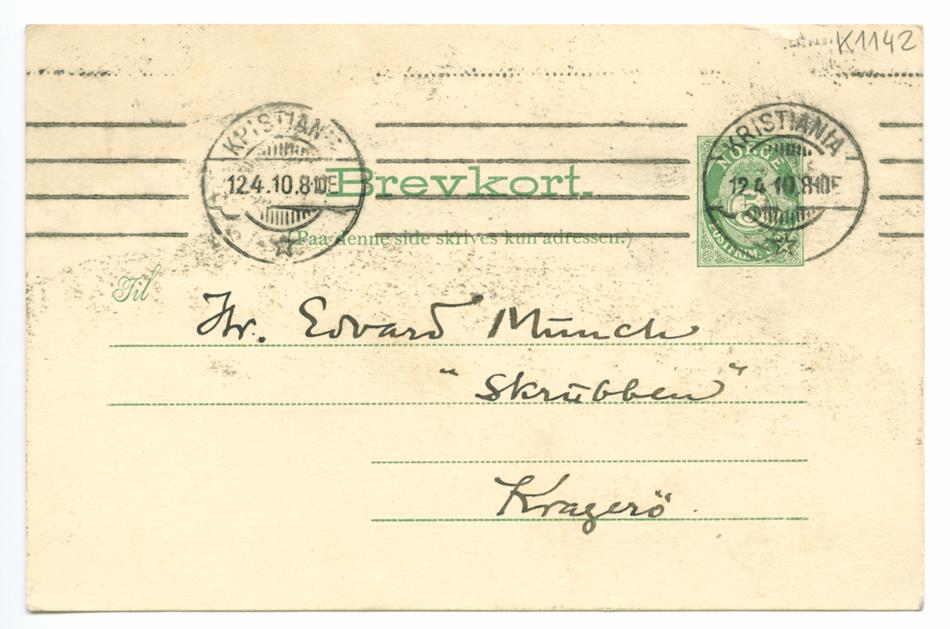 K1142
KRISTIANIA
12.4.10.8-10E
KRISTIANIA
12.4.10.8-10E
NORGE
5
POSTFRIM.
Brevkort.
(Paa denne side skrives kun adressen.)
Til
Hr. Edvard Munch
"Skrubben"
Kragerö.